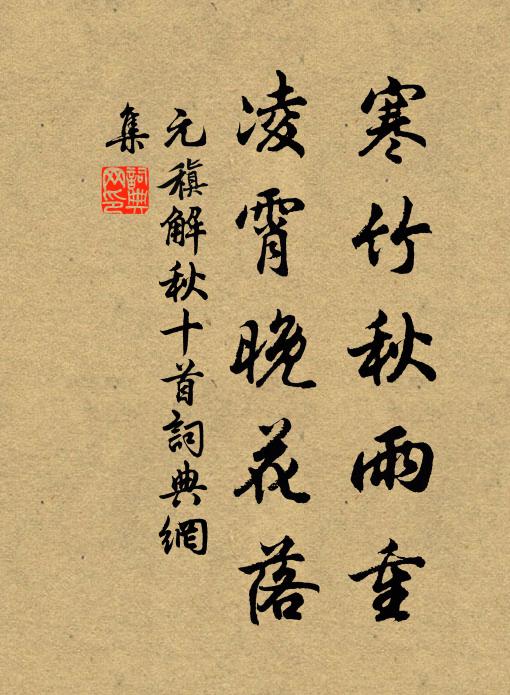 寒竹秋雨重
凌霄晚花落
元稹解秋十首詞典網
集
詞典網印